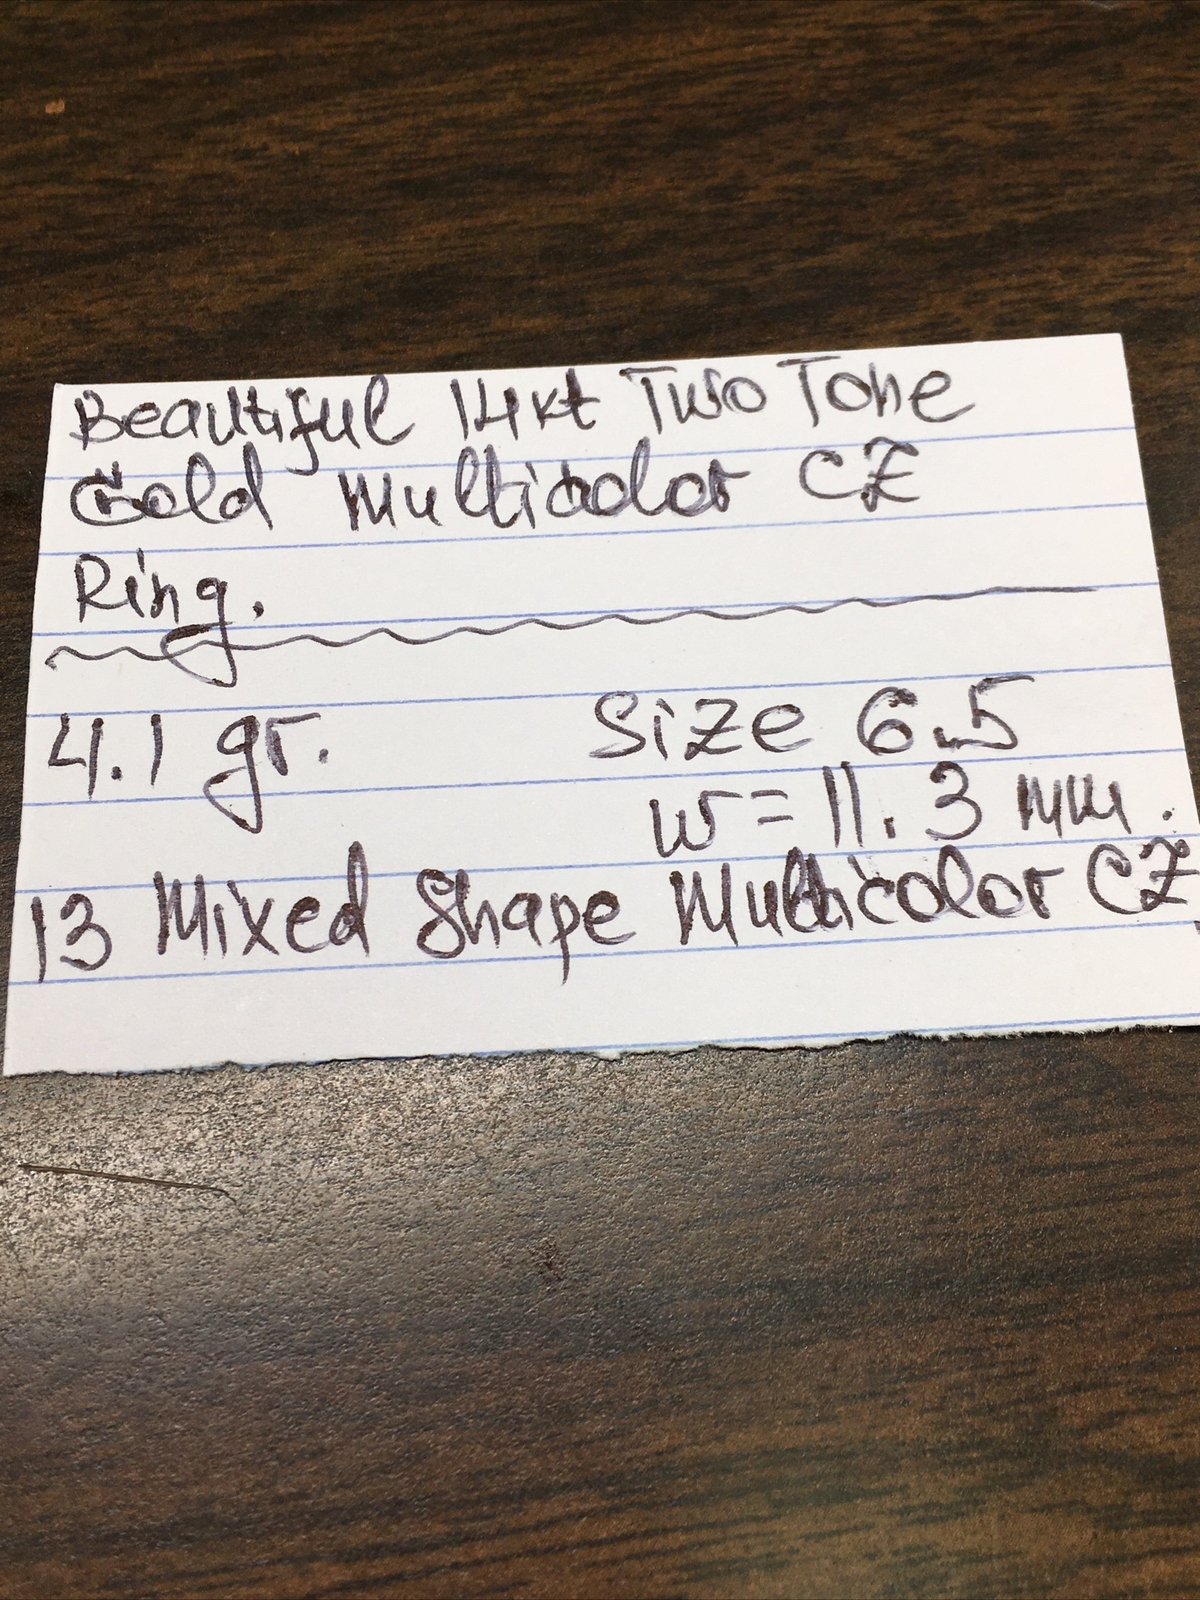 Beautiful 14kt Two Tone
Gold Multicolor CZ
Ring.
4.1 gr. Size 6.5
w = 11.3 mm.
13 Mixed Shape Multicolor CZ